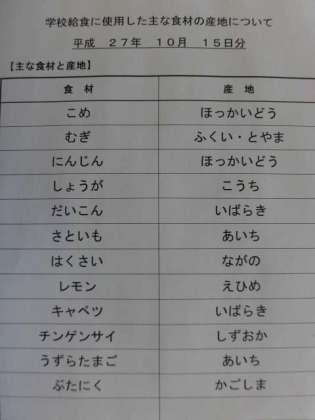 学校給食に使用した主な食材の産地について
平成　２７年　１０月　１５日分
【主な食材と産地】
食　材　産　地
こめ　ほっかいどう
むぎ　ふくい・とやま
にんじん　ほっかいどう
しょうが　こうち
だいこん　いばらき
さといも　あいち
はくさい　ながの
レモン　えひめ
キャベツ　いばらき
チンゲンサイ　しずおか
うずらたまご　あいち
ぶたにく　かごしま